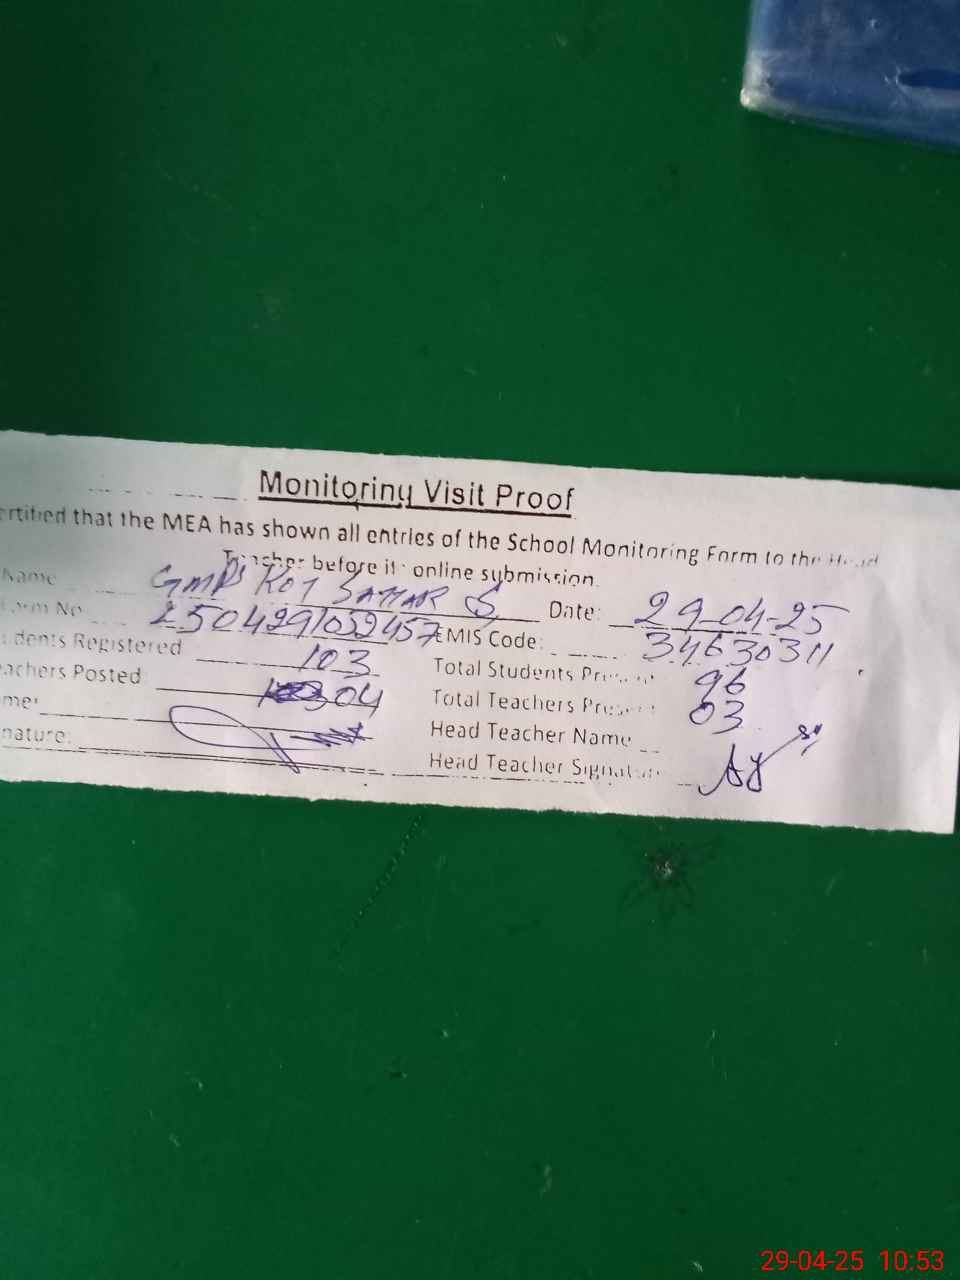 Monitoring Visit Proof
ertified that the MEA has shown all entries of the School Monitoring Form to the Head
Teacher before it online submission.
Name GMPS KOT SATTAR Date: 29-04-25
Form No 2504291052457 EMIS Code: 34630311
dents Registered 103 Total Students Present 96
eachers Posted 04 Total Teachers Present 03
me: Head Teacher Name
nature: Head Teacher Signature
29-04-25 10:53